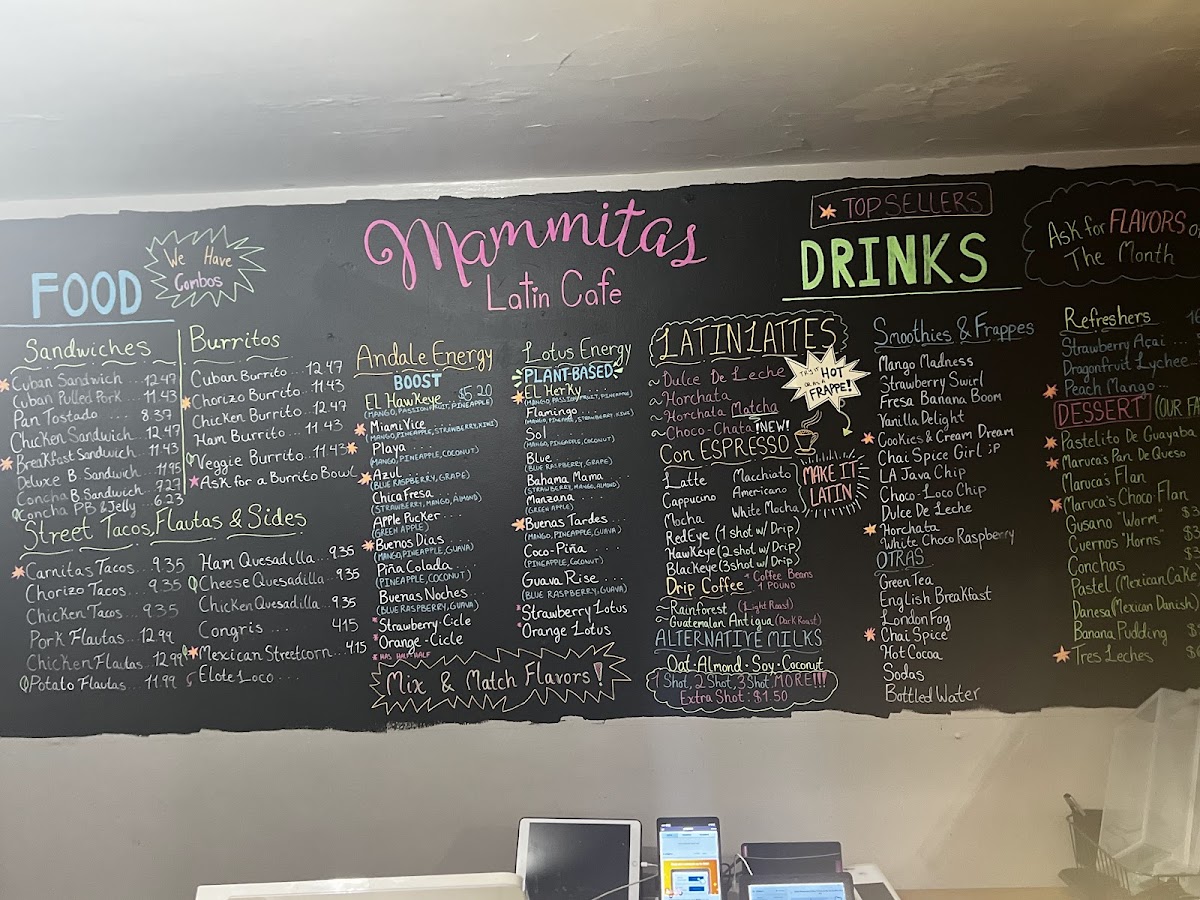 Mammitas
Latin Cafe
FOOD
We Have
Combos
Sandwiches
Cuban Sandwich ... 12.47
Cuban Pulled Pork ... 11.43
Pan Tostado ... 8.37
Chicken Sandwich ... 12.47
Breakfast Sandwich ... 11.43
Deluxe B. Sandwich ... 11.95
Concha B. Sandwich ... 7.27
Concha PB & Jelly ... 6.23
Burritos
Cuban Burrito ... 12.47
Chorizo Burrito ... 11.43
Chicken Burrito ... 12.47
Ham Burrito ... 11.43
Veggie Burrito ... 11.43
Ask for a Burrito Bowl
Street Tacos, Flautas & Sides
Carnitas Tacos ... 9.35
Chorizo Tacos ... 9.35
Chicken Tacos ... 9.35
Pork Flautas ... 12.99
Chicken Flautas ... 12.99
Potato Flautas ... 11.99
Ham Quesadilla ... 9.35
Cheese Quesadilla ... 9.35
Chicken Quesadilla ... 9.35
Congris .... 4.15
Mexican Streetcorn ... 4.15
Elote Loco ....
Andale Energy
BOOST
EL Hawkeye $5.20
(MANGO, PASSION FRUIT, PINEAPPLE)
Miami Vice
(MANGO, PINEAPPLE, STRAWBERRY, KIWI)
Playa
(MANGO, PINEAPPLE, COCONUT)
Azul
(BLUE RASPBERRY, GRAPE)
Chica Fresa
(STRAWBERRY, MANGO, ALMOND)
Apple Pucker
(GREEN APPLE)
Buenos Dias
(MANGO, PINEAPPLE, GUAVA)
Piña Colada
(PINEAPPLE, COCONUT)
Buenas Noches
(BLUE RASPBERRY, GUAVA)
*Strawberry-Cicle
*Orange-Cicle
*HAS HALF HALF
Mix & Match Flavors!
Lotus Energy
PLANT-BASED
EL Herky
(MANGO, PASSION FRUIT, PINEAPPLE)
Flamingo
(MANGO, PINEAPPLE, STRAWBERRY, KIWI)
Sol
(MANGO, PINEAPPLE, COCONUT)
Blue
(BLUE RASPBERRY, GRAPE)
Bahama Mama
(STRAWBERRY, MANGO, ALMOND)
Manzana
(GREEN APPLE)
Buenas Tardes
(MANGO, PINEAPPLE, GUAVA)
Coco-Piña
(PINEAPPLE, COCONUT)
Guava Rise
(BLUE RASPBERRY, GUAVA)
*Strawberry Lotus
*Orange Lotus
TOP SELLERS
DRINKS
LATIN LATTES
~Dulce De Leche
~Horchata
~Horchata Matcha
~Choco-Chata NEW!
HOT
FRAPPE!
Con ESPRESSO
Latte
Cappucino
Mocha
Macchiato
Americano
White Mocha
RedEye (1 shot w/Drip)
HawkEye (2 shot w/Drip)
Blackeye (3 shot w/Drip)
MAKE IT
LATIN
Drip Coffee
* Coffee Beans
1 POUND
~Rainforest (Light Roast)
~Guatemalan Antigua (Dark Roast)
ALTERNATIVE MILKS
Oat · Almond · Soy · Coconut
1 Shot, 2 Shot, 3 Shot MORE!!!
Extra Shot: $1.50
Smoothies & Frappes
Mango Madness
Strawberry Swirl
Fresa Banana Boom
Vanilla Delight
Cookies & Cream Dream
Chai Spice Girl ;P
LA Java Chip
Choco-Loco Chip
Dulce De Leche
Horchata
White Choco Raspberry
OTRAS
Green Tea
English Breakfast
London Fog
Chai Spice
Hot Cocoa
Sodas
Bottled Water
Ask for FLAVORS
The Month
Refreshers
Strawberry Açai ...
Dragonfruit Lychee ...
Peach Mango ...
DESSERT (OUR
Pastelito De Guayaba
Maruca's Pan De Queso
Maruca's Flan
Maruca's Choco-Flan
Gusano "Worm"
Cuernos "Horns"
Conchas
Pastel (Mexican Cake)
Danesa (Mexican Danish)
Banana Pudding
Tres Leches